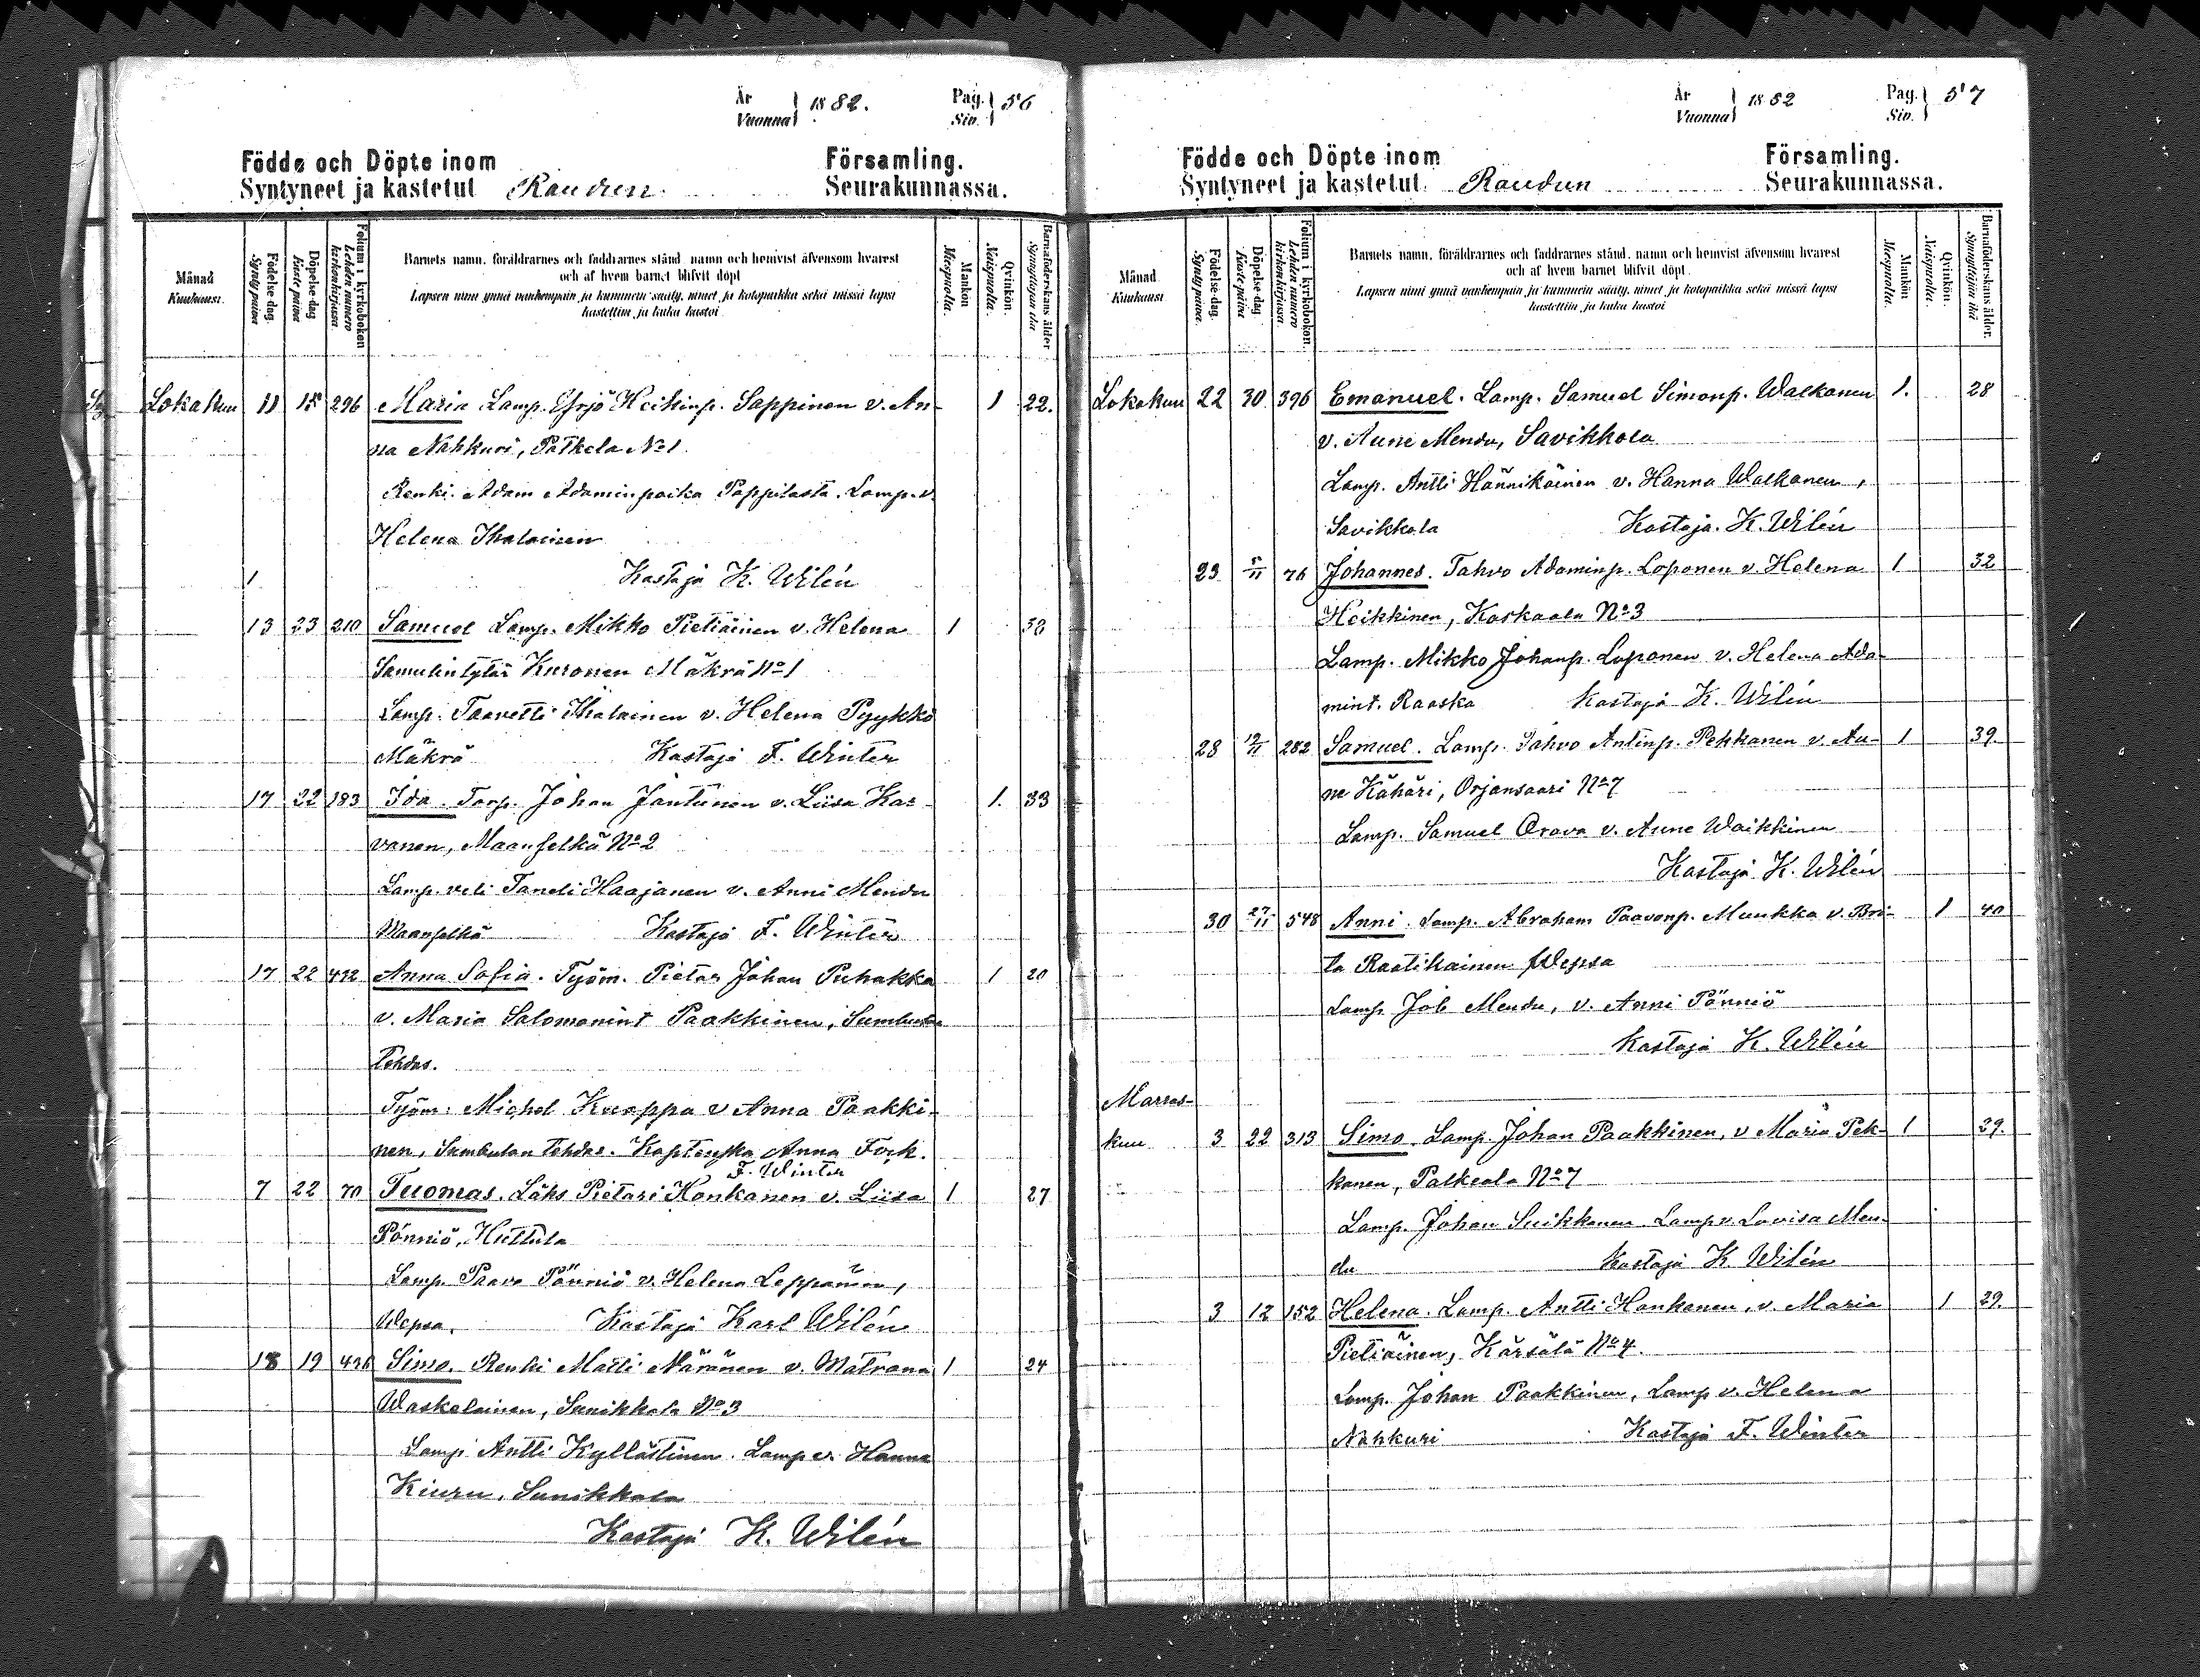 År
Vuonna } 1882.
Pag.
Siv. } 56
Födde och Döpte inom Församling.
Syntyneet ja kastetut Raudun Seurakunnassa.
Månad
Kuukausi.
Födelse-dag.
Syntypäivä
Döpelse-dag
Kastepäivä
Folium i kyrkoboken
Lehden numero kirkonkirjassa
Barnets namn, föräldrarnes och faddrarnes stånd, namn och hemvist äfvensom hvarest
och af hvem barnet blifvit döpt
Lapsen nimi ynnä vanhempain ja kummein sääty, nimet ja kotopaikka sekä missä lapsi
kastettiin ja kuka kastoi
Mankön
Miespuolta.
Qvinkön.
Naispuolta.
Barnaföderskans ålder
Synnyttäjän ikä
Lokakuu 11 15 296 Maria Lamp. Yrjö Heikinp. Sappinen v. An- 1 22.
na Nahkuri, Palkela No 1
Renki. Adam Adaminpoika Pappilasta. Lamp. v.
Helena Ihalainen
Kastaja K. Wilén
13 23 210 Samuel Lamp. Mikko Pietiäinen v. Helena 1 38
Samulintytär Kuronen Mäkrä No 1
Lamp. Taavetti Ihalainen v. Helena Pyykkö
Mäkrä Kastaja F. Winter
17 22 183 Ida. Torp. Johan Jantunen v. Liisa Kar- 1. 33
vanen, Maanselkä No 2
Lamp. veli Taneli Haajanen v. Anni Mendu
Maanselkä Kastaja F. Winter
17 22 472 Anna Sofia. Työm. Pietar Johan Puhakka 1 20
v. Maria Salomonint Paakkinen, Sumbulan
Tehdas.
Työm: Michel Kuoppa v Anna Paakki-
nen, Sumbulan tehdas. Anna Fock.
F. Winter
7 22 70 Tuomas. Läks Pietari Konkanen v. Liisa 1 27
Pönniö, Huttula
Lamp Paavo Pönniö v. Helena Leppänen,
Wepsa. Kastaja Karl Wilén
18 19 436 Simo. Renki Matti Näränen v. Matrona 1 24
Waskelainen, Sunikkala No 3
Lamp. Antti Kyllästinen. Lamp v. Hanna
Kiuru, Sunikkala
Kastaja K. Wilén
År
Vuonna } 1882
Pag.
Siv. } 57
Födde och Döpte inom Församling.
Syntyneet ja kastetut Raudun Seurakunnassa.
Månad
Kuukausi
Födelse-dag.
Syntypäivä.
Döpelse-dag
Kastepäivä
Folium i kyrkoboken.
Lehden numero kirkonkirjassa
Barnets namn, föräldrarnes och faddrarnes stånd, namn och hemvist äfvensom hvarest
och af hvem barnet blifvit döpt.
Lapsen nimi ynnä vanhempain ja kummein sääty, nimet ja kotopaikka sekä missä lapsi
kastettiin ja kuka kastoi
Mankön
Miespuolta.
Qvinkön.
Naispuolta.
Barnaföderskans ålder.
Synnyttäjän ikä
Lokakuu 22 30 396 Emanuel. Lamp. Samuel Simonp. Walkonen 1. 28
v. Aune Mendu, Savikkola
Lamp. Antti Hännikäinen v. Hanna Walkonen,
Savikkola Kastaja. K. Wilén
23 5/11 76 Johannes. Tahvo Adaminp. Loponen v. Helena 1 32
Heikkinen, Koskaala No 3
Lamp. Mikko Johanp. Loponen v. Helena Ada-
mint. Raaska Kastaja K. Wilén
28 12/11 282 Samuel. Lamp. Tahvo Antinp. Pekkanen v. Au- 1 39.
ne Kähäri, Orjansaari No 7
Lamp. Samuel Orava v. Aune Waikkinen
Kastaja K. Wilén
30 27/11 548 Anni. Lamp. Abraham Paavonp. Muukka v. Bri- 1 40
ta Raatikainen Wepsa
Lamp Job Mendu, v. Anni Pönniö
Kastaja K. Wilén
Marras-
kuu 3 22 313 Simo. Lamp. Johan Paakkinen, v Maria Pek- 1 39.
kanen, Palkeala No 7
Lamp. Johan Suikkanen Lamp v. Lovisa Men-
du Kastaja K Wilén
3 12 152 Helena. Lamp. Antti Hankanen, v. Maria 1 29.
Pietiäinen, Kärsälä No 4.
Lamp. Johan Paakkinen, Lamp v. Helena
Nahkuri Kastaja F. Winter